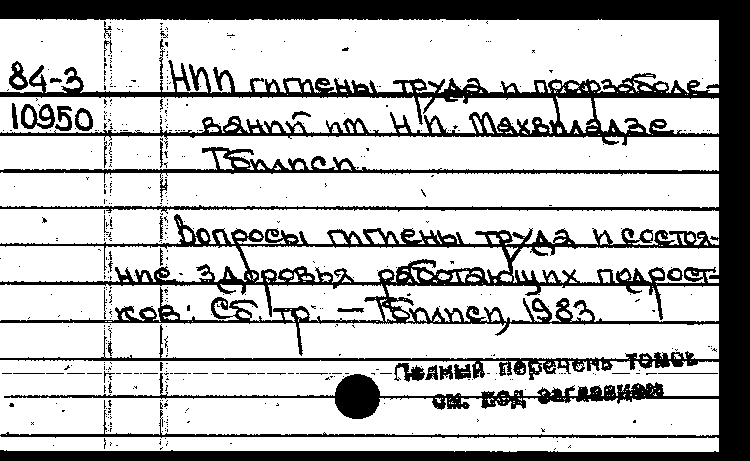 84-3
10950
НИИ гигиены труда и профзаболе-
ваний им. Н.И. Махвиладзе
Тбилиси.
Вопросы гигиены труда и состоя-
ние здоровья работающих подрост-
ков: Сб. тр. — Тбилиси, 1983.
Полный перечень томов
см. под заглавием